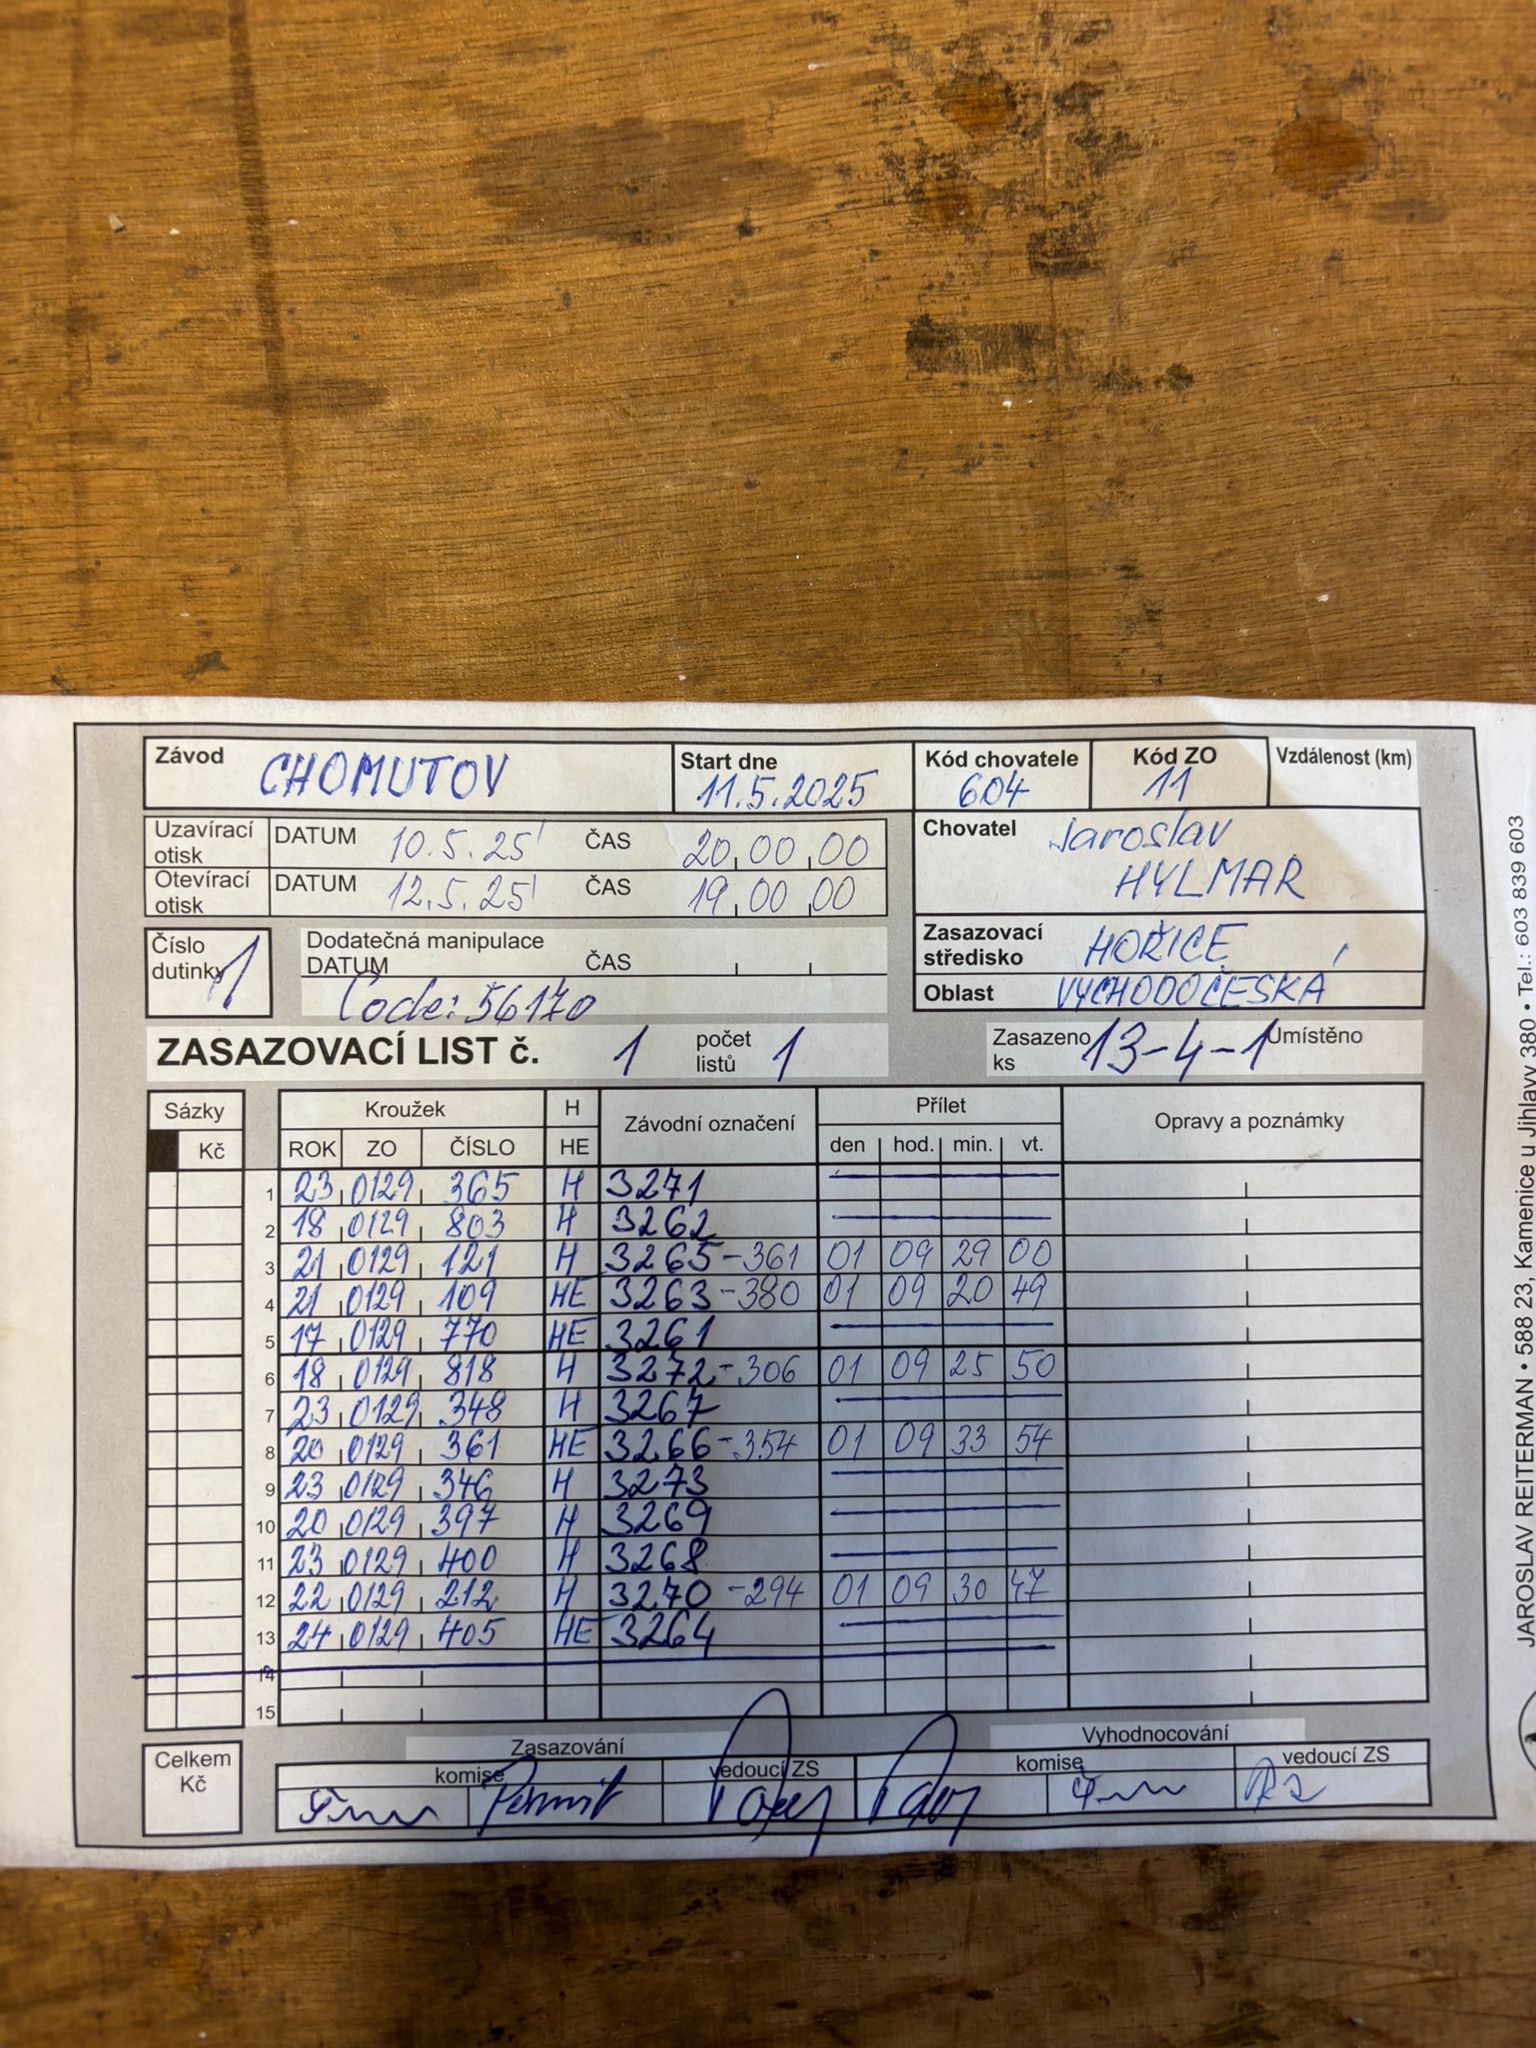 Závod CHOMUTOV Start dne 11.5.2025 Kód chovatele 604 Kód ZO 11 Vzdálenost (km)
Uzavírací otisk DATUM 10.5.25' ČAS 20 00 00
Otevírací otisk DATUM 12.5.25' ČAS 19 00 00
Chovatel Jaroslav
HYLMAR
Číslo dutinky 1
Dodatečná manipulace
DATUM ČAS
Code: 56170
Zasazovací středisko HOŘICE
Oblast VÝCHODOČESKÁ
ZASAZOVACÍ LIST č. 1 počet listů 1 Zasazeno ks 13-4-1 Umístěno
Sázky Kroužek H Závodní označení Přílet Opravy a poznámky
Kč ROK ZO ČÍSLO HE den hod. min. vt.
1 23 0129 365 H 3271
2 18 0129 803 H 3262
3 21 0129 121 H 3265-361 01 09 29 00
4 21 0129 109 HE 3263-380 01 09 20 49
5 17 0129 770 HE 3261
6 18 0129 818 H 3272-306 01 09 25 50
7 23 0129 348 H 3267
8 20 0129 361 HE 3266-354 01 09 33 54
9 23 0129 346 H 3273
10 20 0129 397 H 3269
11 23 0129 400 H 3268
12 22 0129 212 H 3270-294 01 09 30 47
13 24 0129 405 HE 3264
14
15
Celkem Kč
Zasazování Vyhodnocování
komise vedoucí ZS komise vedoucí ZS
JAROSLAV REITERMAN • 588 23, Kamenice u Jihlavy 380 • Tel.: 603 839 603